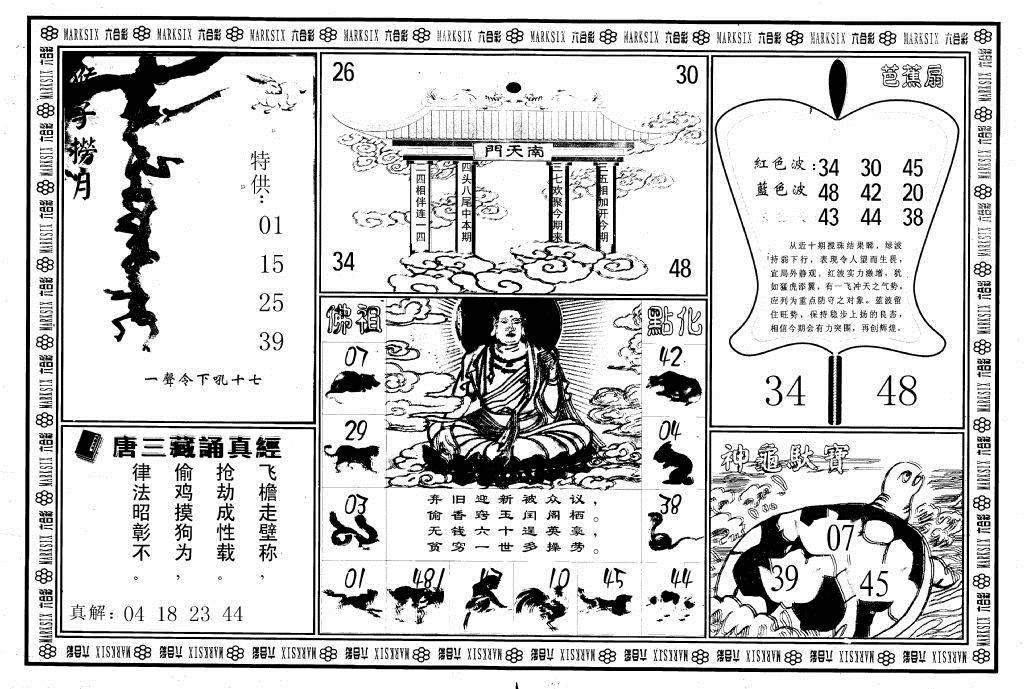 MARKSIX 六合彩 MARKSIX 六合彩 MARKSIX 六合彩 MARKSIX 六合彩 MARKSIX 六合彩 MARKSIX 六合彩 MARKSIX 六合彩 MARKSIX 六合彩 MARKSIX 六合彩 MARKSIX 六合彩
猴子撈月
特供：
01
15
25
39
一聲令下吼十七
26
30
南天門
一二四相伴连一四
四头八尾中本期
三七欢聚今期来
二五相加开今期
34
48
芭蕉扇
紅色波：34 30 45
藍色波 48 42 20
43 44 38
从近十期搅珠结果睇，绿波
持弱下行，表现令人望而生畏，
宜局外静观。红波实力激增，犹
如猛虎添翼，有一飞冲天之气势，
应列为重点防守之对象。蓝波留
住旺势，保持稳步上扬的良态，
相信今期会有力突围，再创辉煌。
34
48
佛祖
點化
07
29
03
42
04
38
弃旧迎新被众议，
偷香窍玉闰阁栖。
无钱六十逞英豪，
贫穷一世多操劳。
01
481
10
45
44
唐三藏誦真經
飞檐走壁称，
抢劫成性载。
偷鸡摸狗为，
律法昭彰不。
真解：04 18 23 44
神龜馱寶
07
39
45
MARKSIX 六合彩 MARKSIX 六合彩 MARKSIX 六合彩 MARKSIX 六合彩 MARKSIX 六合彩 MARKSIX 六合彩 MARKSIX 六合彩 MARKSIX 六合彩 MARKSIX 六合彩 MARKSIX 六合彩